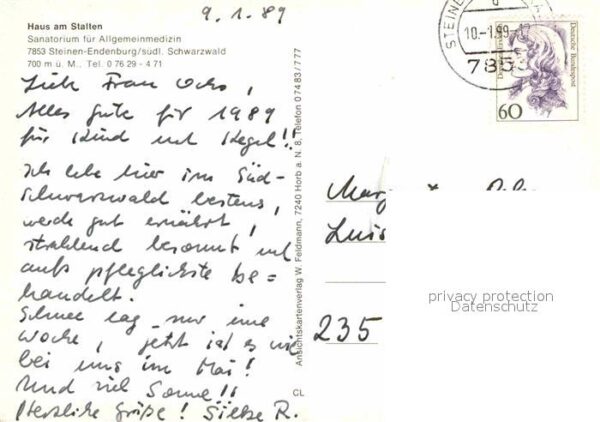 9.1.89
Haus am Stalten
Sanatorium für Allgemeinmedizin
7853 Steinen-Endenburg/südl. Schwarzwald
700 m ü. M., Tel. 0 76 29 - 4 71
Liebe Frau Ochs,
Alles Gute für 1989
für Kind und Kegel!!
Ich lebe hier im Süd-
schwarzwald bestens,
werde gut ernährt,
strahlend besonnt und
aufs pfleglichste be-
handelt.
Schnee lag nur eine
Woche, jetzt ist es wie
bei uns im Mai!
Und viel Sonne!!
Herzliche Grüße! Silke R.
Ansichtskartenverlag W. Feldmann, 7240 Horb a. N. 8, Telefon 0 74 83 / 7 77
CL
STEINEN
10.-1.89-17
7853
Deutsche Bundespost
60
Luis
235
privacy protection
Datenschutz